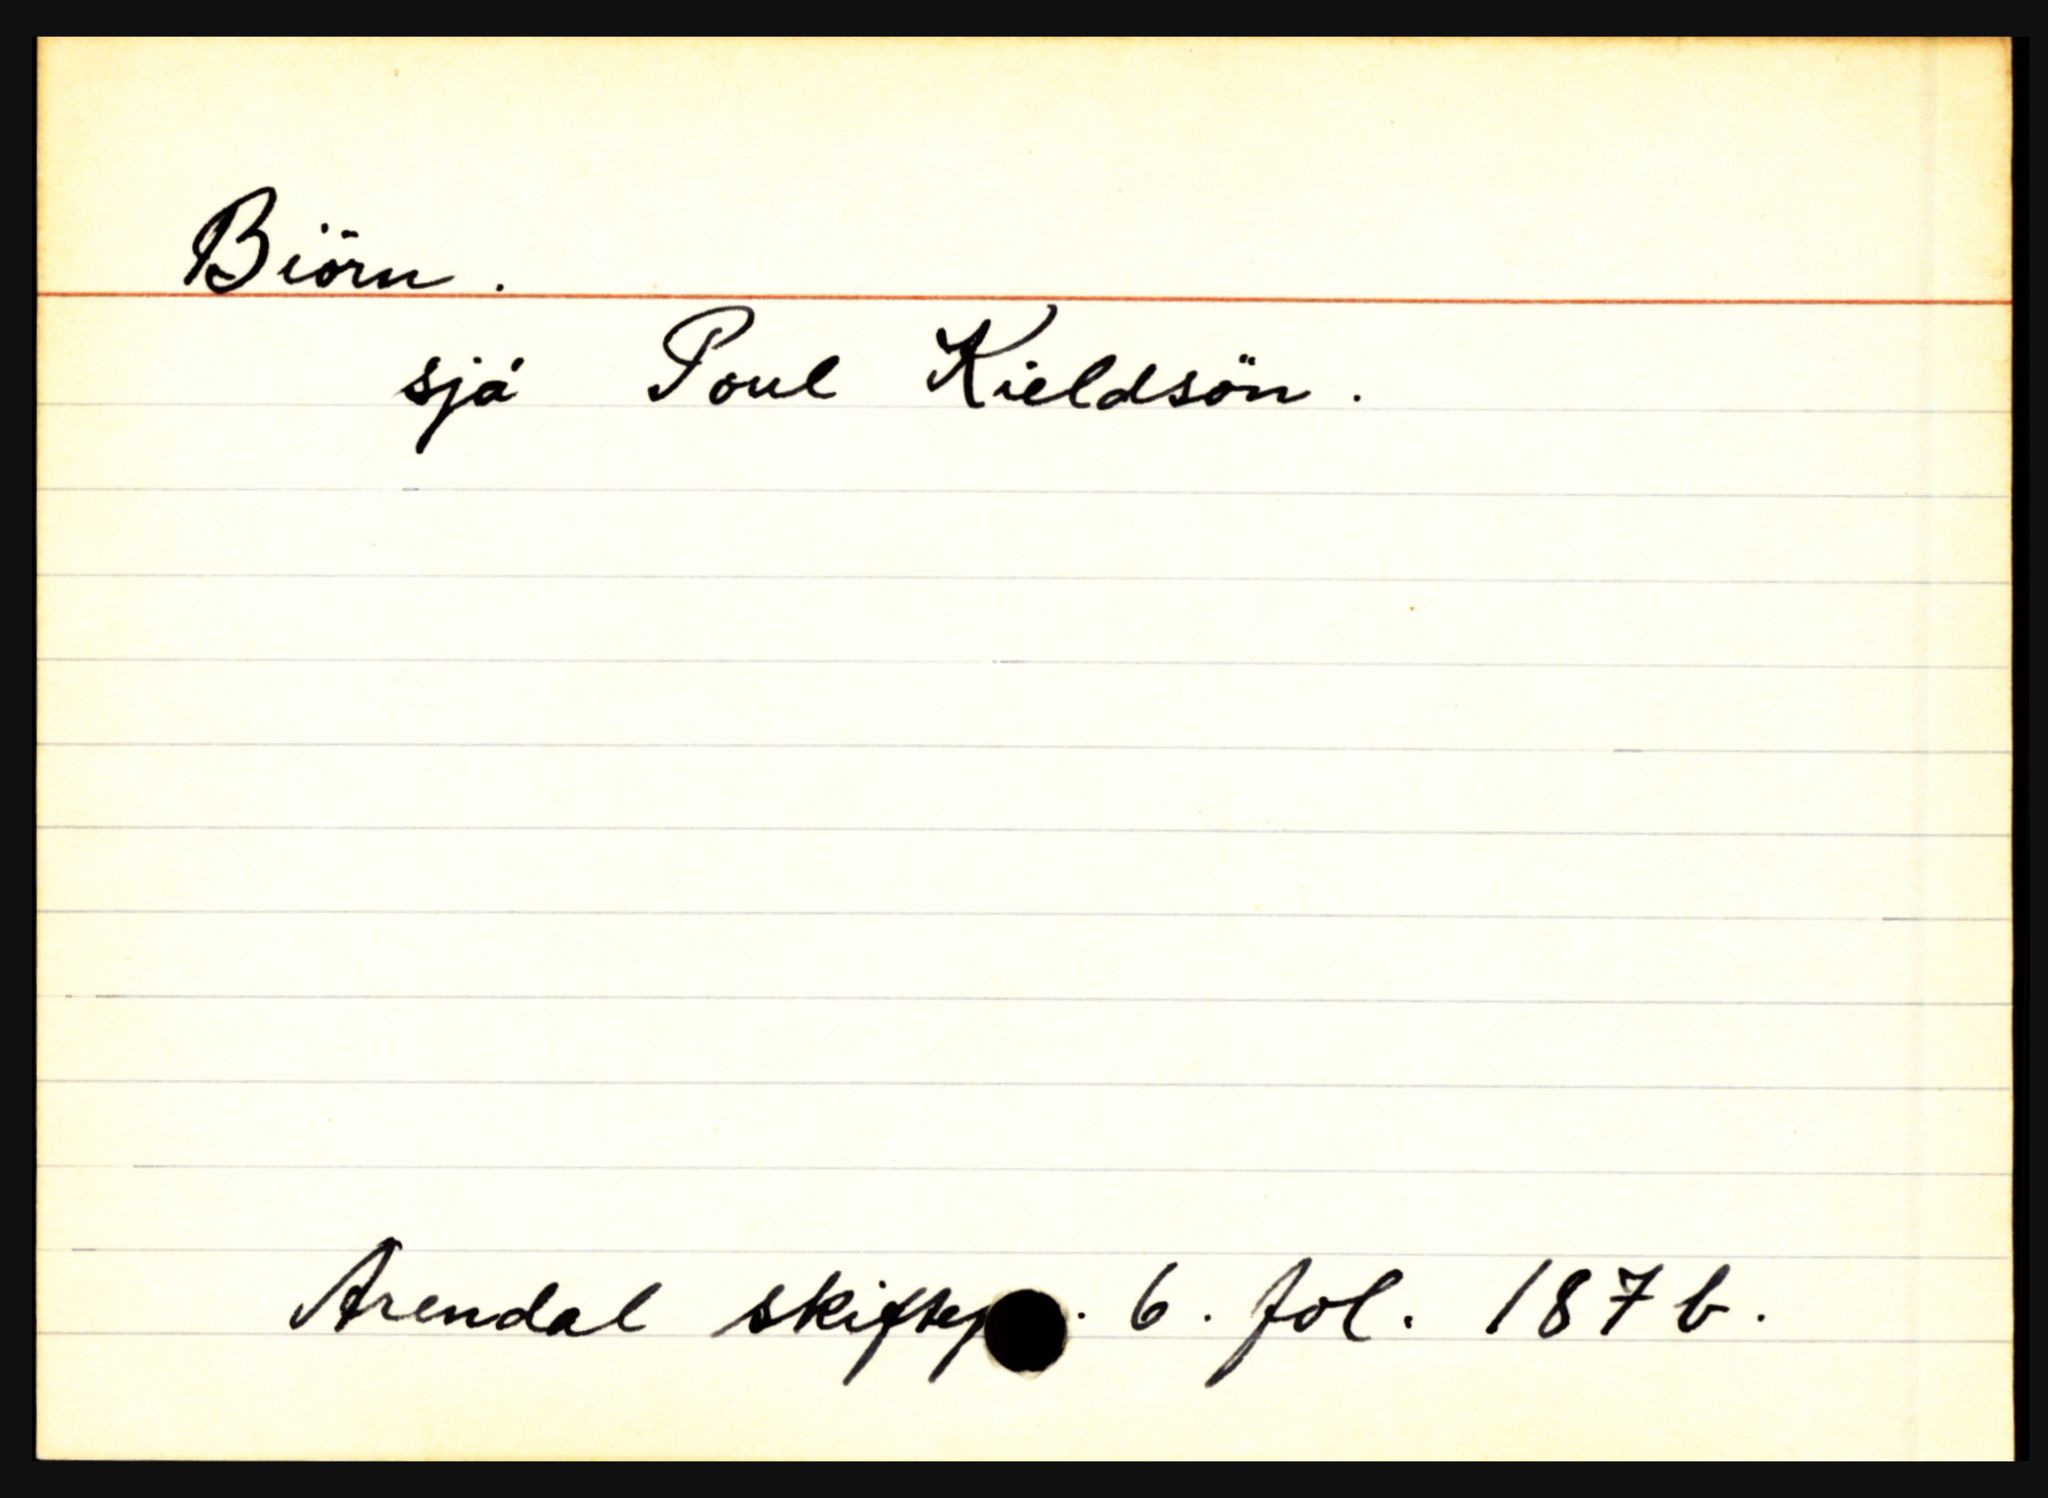 Biörn.
sjá Poul Kieldsön.
Arendal skiftep. 6. fol. 187 b.